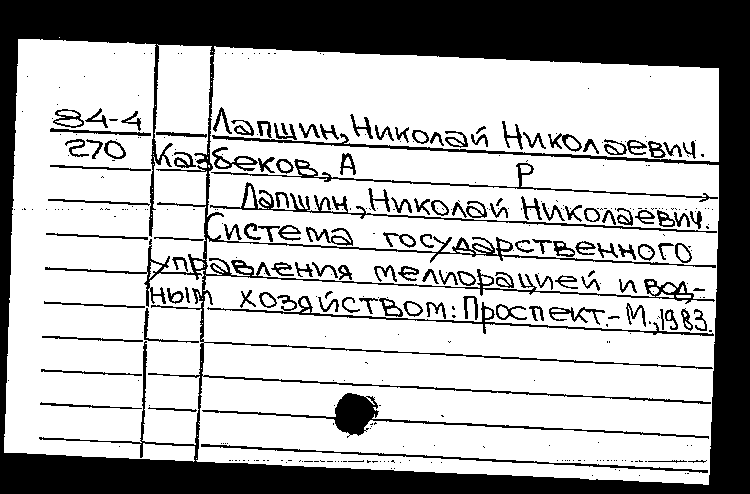 84-4 Лапшин, Николай Николаевич.
270 Казбеков, А Р
Лапшин, Николай Николаевич.
Система государственного
управления мелиорацией и вод-
ным хозяйством: Проспект.- М., 1983.